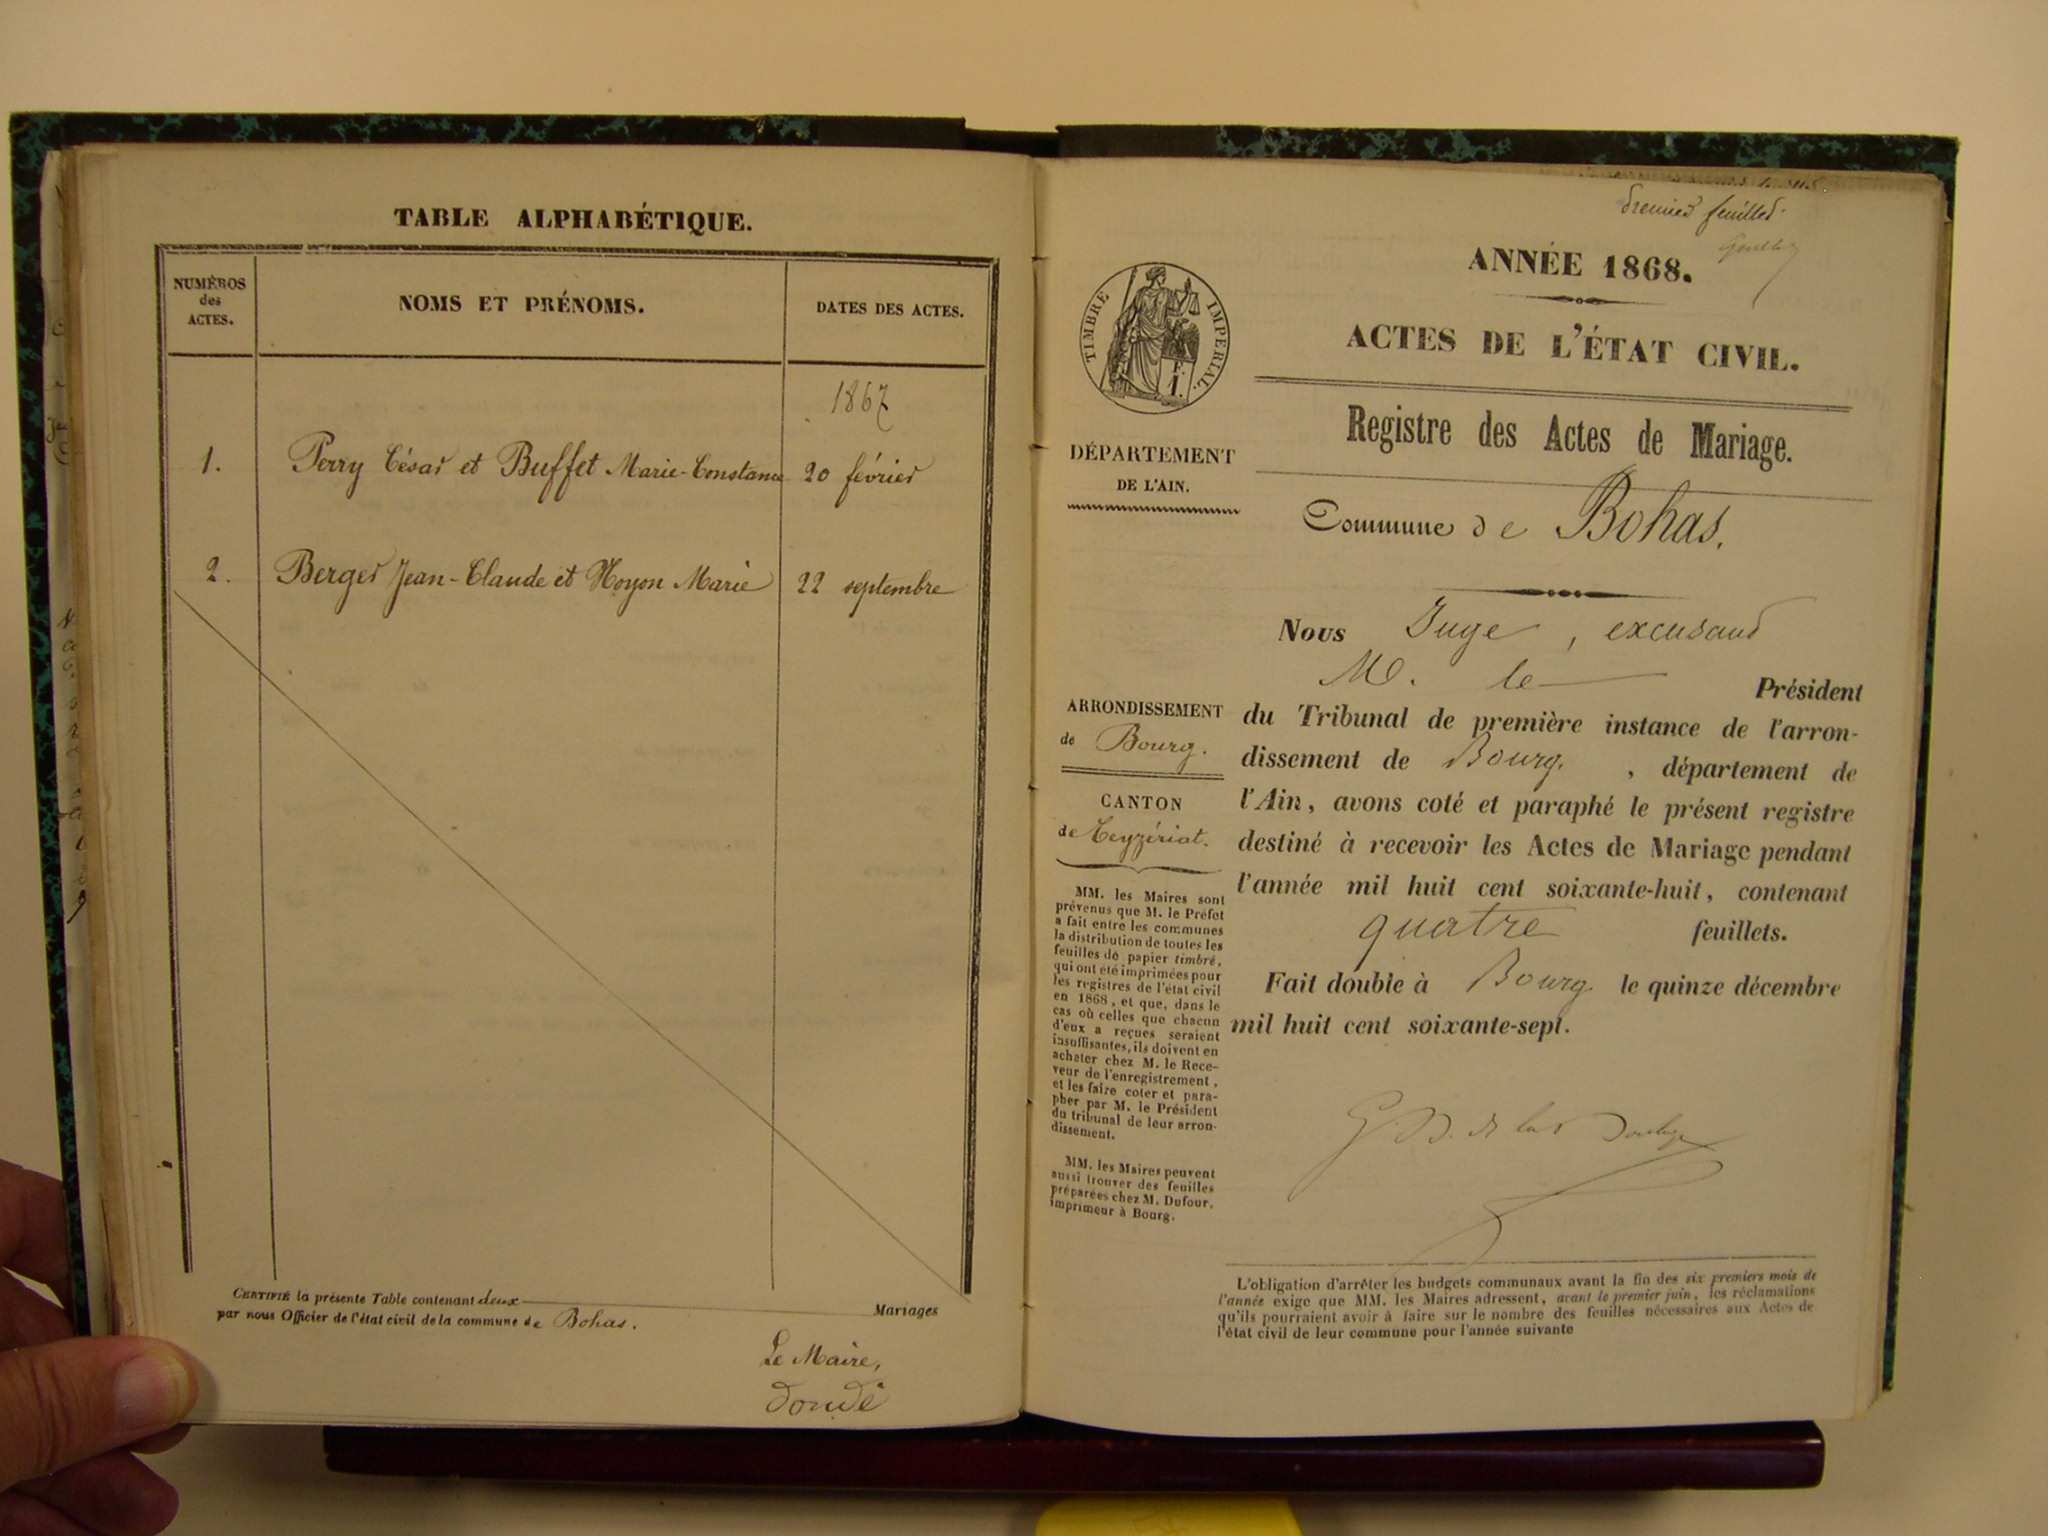 TABLE ALPHABÉTIQUE.
NUMÉROS
des
ACTES.
NOMS ET PRÉNOMS.
DATES DES ACTES.
1867
1. Perry César et Buffet Marie-Constance 20 février
2. Berger Jean-Claude et Noyon Marie 22 septembre
CERTIFIÉ la présente Table contenant deux Mariages
par nous Officier de l'état civil de la commune de Bohas.
Le Maire,
premier feuillet
ANNÉE 1868.
ACTES DE L'ÉTAT CIVIL.
TIMBRE IMPÉRIAL.
F.
1.
Registre des Actes de Mariage.
DÉPARTEMENT
DE L'AIN.
Commune de Bohas.
Nous Juge, excusant
M. le Président
du Tribunal de première instance de l'arron-
dissement de Bourg, département de
l'Ain, avons coté et paraphé le présent registre
destiné à recevoir les Actes de Mariage pendant
l'année mil huit cent soixante-huit, contenant
quatre feuillets.
Fait double à Bourg le quinze décembre
mil huit cent soixante-sept.
ARRONDISSEMENT
de Bourg.
CANTON
de Ceyzériat.
MM. les Maires sont
prévenus que M. le Préfet
a fait entre les communes
la distribution de toutes les
feuilles de papier timbré,
qui ont été imprimées pour
les registres de l'état civil
en 1868, et que, dans le
cas où celles que chacun
d'eux a reçues seraient
insuffisantes, ils doivent en
acheter chez M. le Rece-
veur de l'enregistrement,
et les faire coter et para-
pher par M. le Président
du tribunal de leur arron-
dissement.
MM. les Maires peuvent
aussi trouver des feuilles
préparées chez M. Dufour,
imprimeur à Bourg.
L'obligation d'arrêter les budgets communaux avant la fin des six premiers mois de
l'année exige que MM. les Maires adressent, avant le premier juin, les réclamations
qu'ils pourraient avoir à faire sur le nombre des feuilles nécessaires aux Actes de
l'état civil de leur commune pour l'année suivante